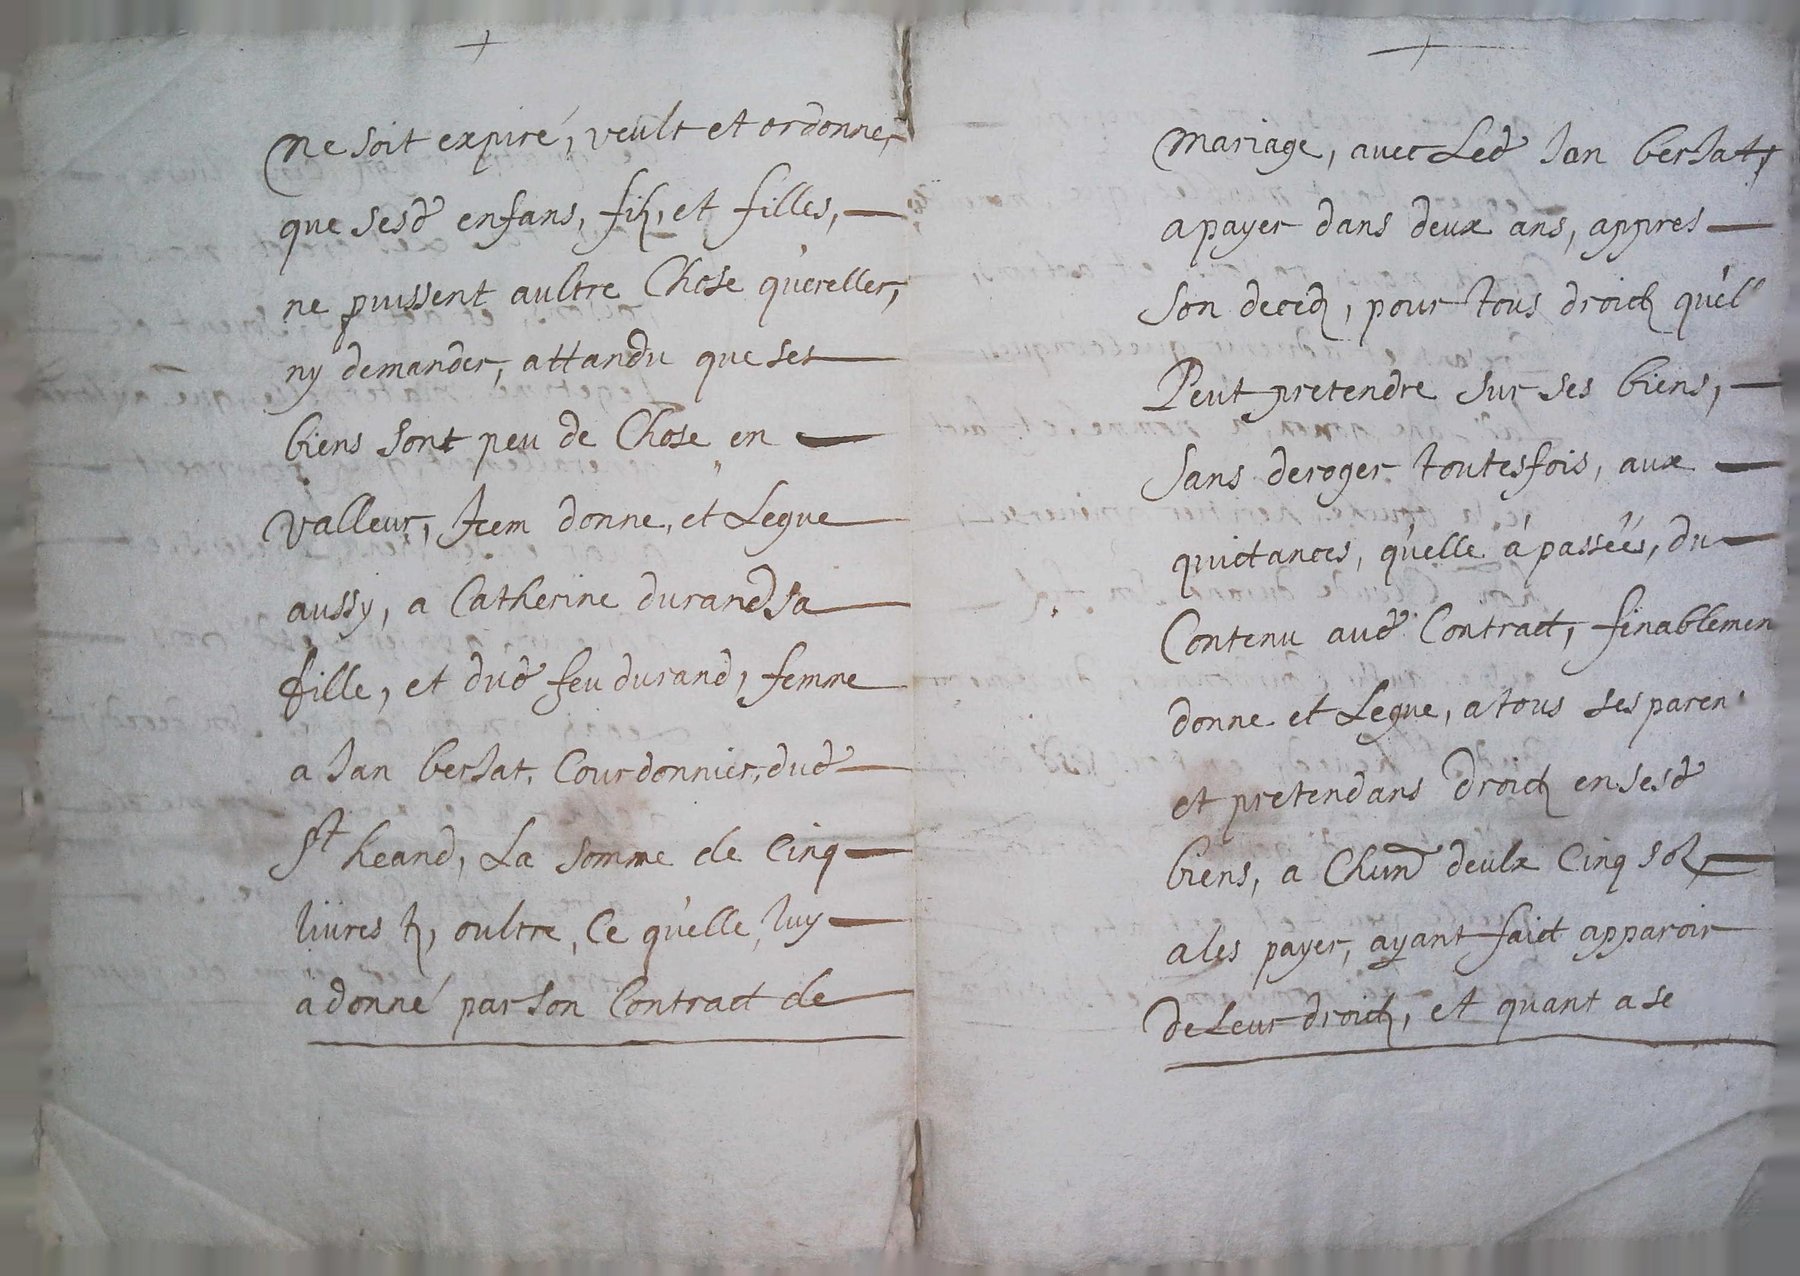 ne soit expiré, veult et ordonne,
que sesd enfans, filz, et filles,
ne puissent aultre Chose quereller,
ny demander, attandu que ses
biens sont peu de Chose en
valleur, Item donne, et Legue
aussy, a Catherine durand sa
fille, et dud feu durand, femme
a Jan berJat, Courdonnier, dud
St heand, La somme de Cinq
livres tz, oultre, Ce qu'elle, luy
a donné par son Contract de
mariage, avec Led Jan berJat,
a payer dans deux ans, appres
son decedz, pour tous droictz qu'ell
Peut pretendre sur ses biens,
sans deroger toutesfois, aux
quictances, qu'elle à passéés, du
Contenu aud Contract, finablemen
donne et Legue, a tous ses paren
et pretendans droictz en sesd
biens, a Chund deulx Cinq solz
a les payer, ayant faict apparoir
de Leur droictz, et quant a se